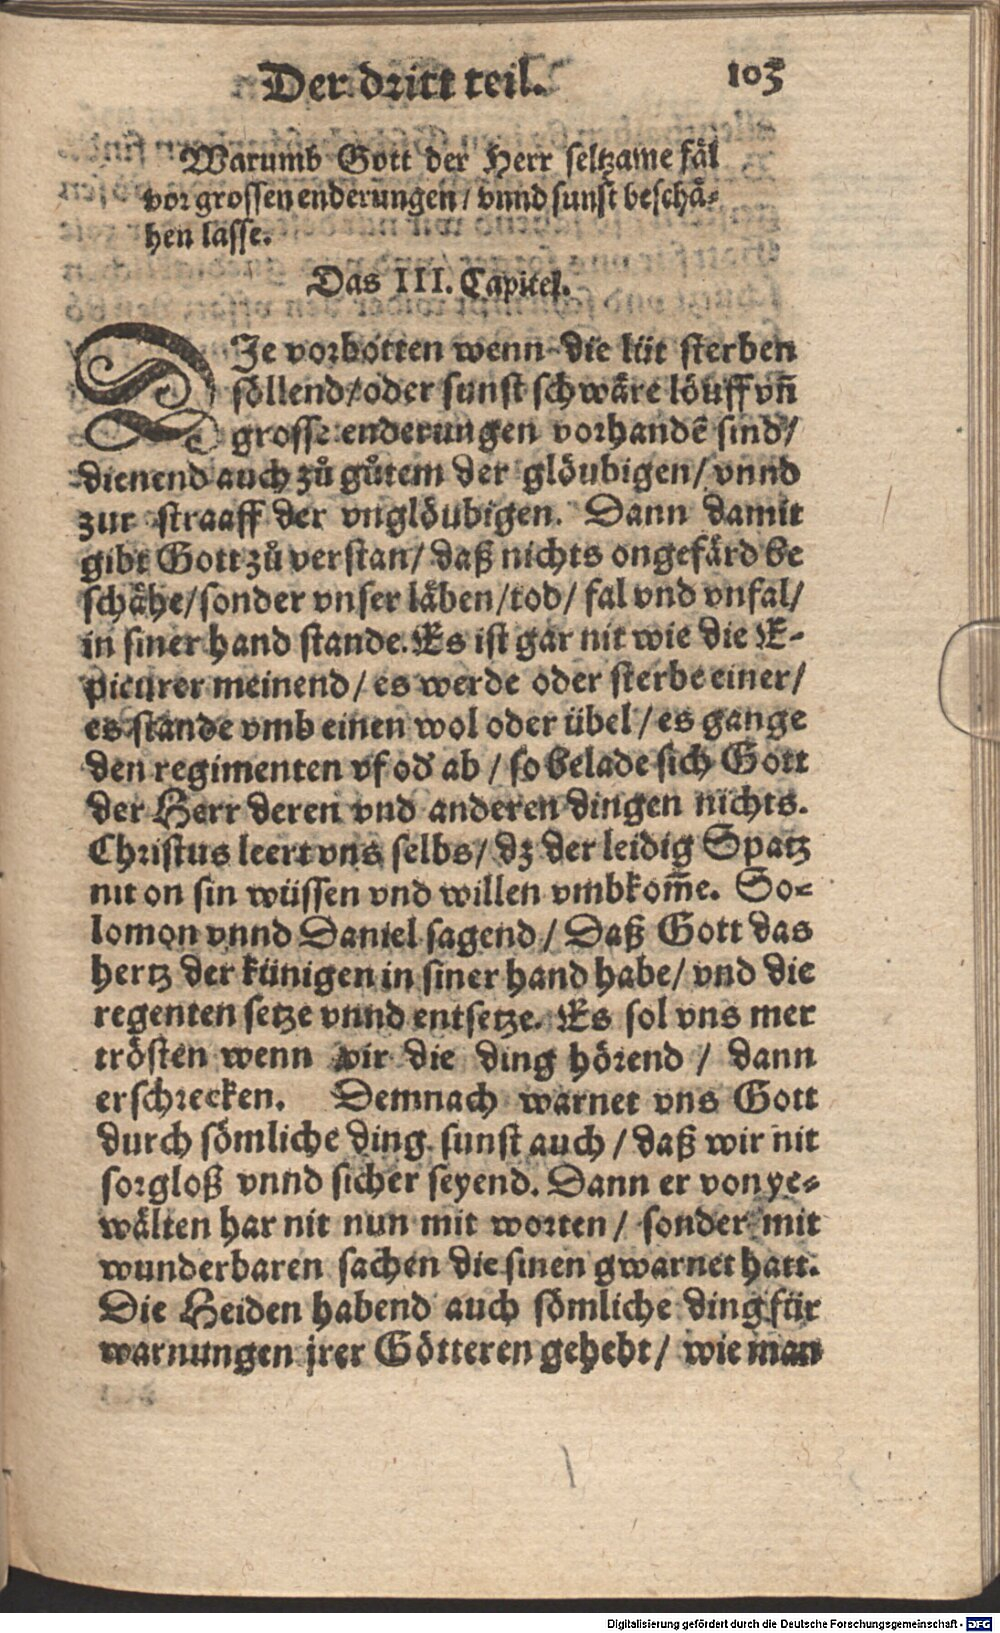 Der dritt teil. 103
Warumb Gott der Herr seltzame fäl
vor grossen enderungen / vnnd sunst beschä-
hen lasse.
Das III. Capitel.
DIe vorbotten wenn die lüt sterben
söllend / oder sunst schwäre löuff vñ
grosse enderungen vorhandẽ sind /
dienend auch zů gůtem der glöubigen / vnnd
zur straaff der vnglöubigen. Dann damit
gibt Gott zů verstan / daß nichts ongefärd be
schähe / sonder vnser läben / tod / fal vnd vnfal /
in siner hand stande. Es ist gar nit wie die E-
picurer meinend / es werde oder sterbe einer /
es stande vmb einen wol oder übel / es gange
den regimenten vf od' ab / so belade sich Gott
der Herr deren vnd anderen dingen nichts.
Christus leert vns selbs / dz der leidig Spatz
nit on sin wüssen vnd willen vmbkom̃e. So-
lomon vnnd Daniel sagend / Daß Gott das
hertz der künigen in siner hand habe / vnd die
regenten setze vnnd entsetze. Es sol vns mer
trösten wenn wir die ding hörend / dann
erschrecken. Demnach warnet vns Gott
durch sömliche ding sunst auch / daß wir nit
sorgloß vnnd sicher seyend. Dann er von ye-
wälten har nit nun mit worten / sonder mit
wunderbaren sachen die sinen gwarnet hatt.
Die Heiden habend auch sömliche ding für
warnungen jrer Götteren gehebt / wie man
Digitalisierung gefördert durch die Deutsche Forschungsgemeinschaft - DFG